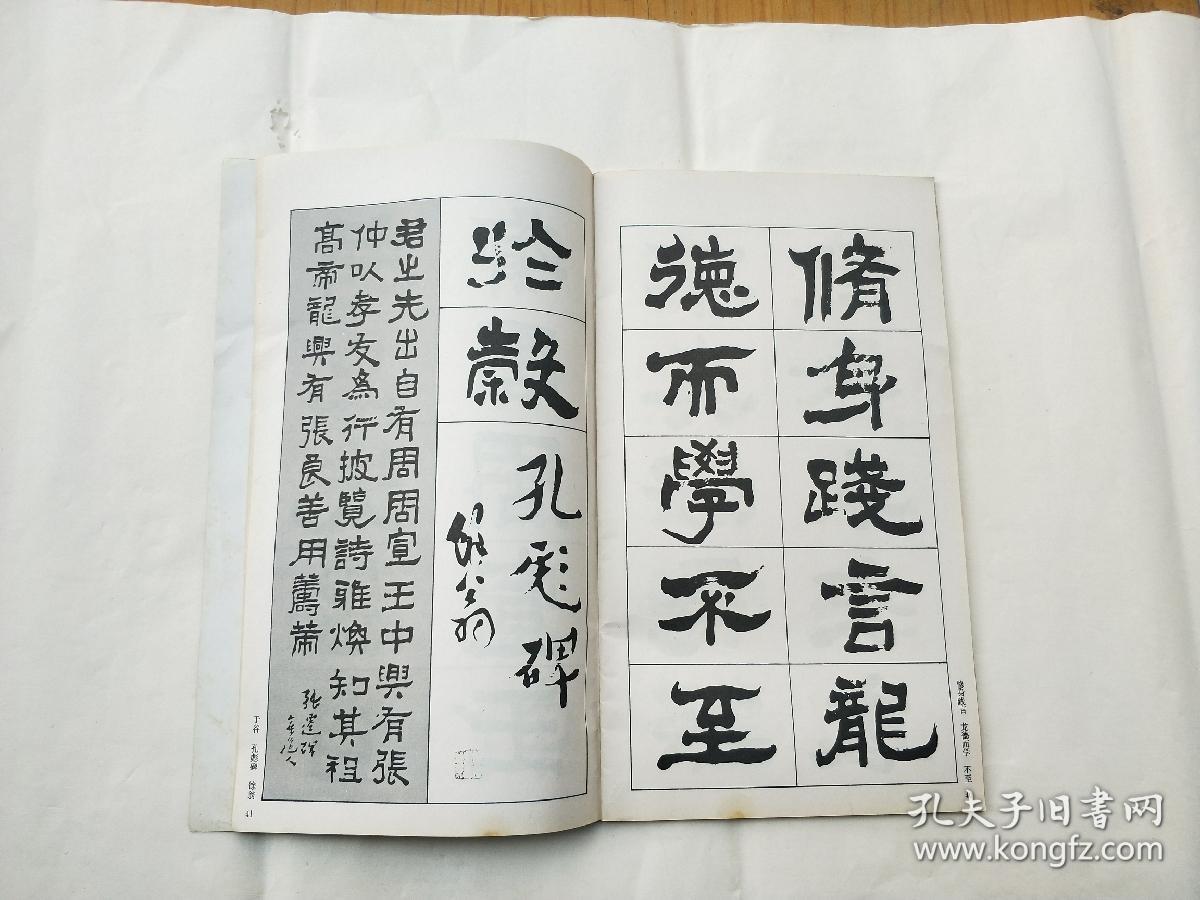 脩身踐言龍
德而學不至
於穀
孔彪碑
餘翁
君之先出自有周周宣王中興有張
仲以孝友為行披覽詩雅煥知其祖
高帝龍興有張良善用籌策
張遷碑
于谷 孔彪碑 馀翁
41
孔夫子旧书网
www.kongfz.com